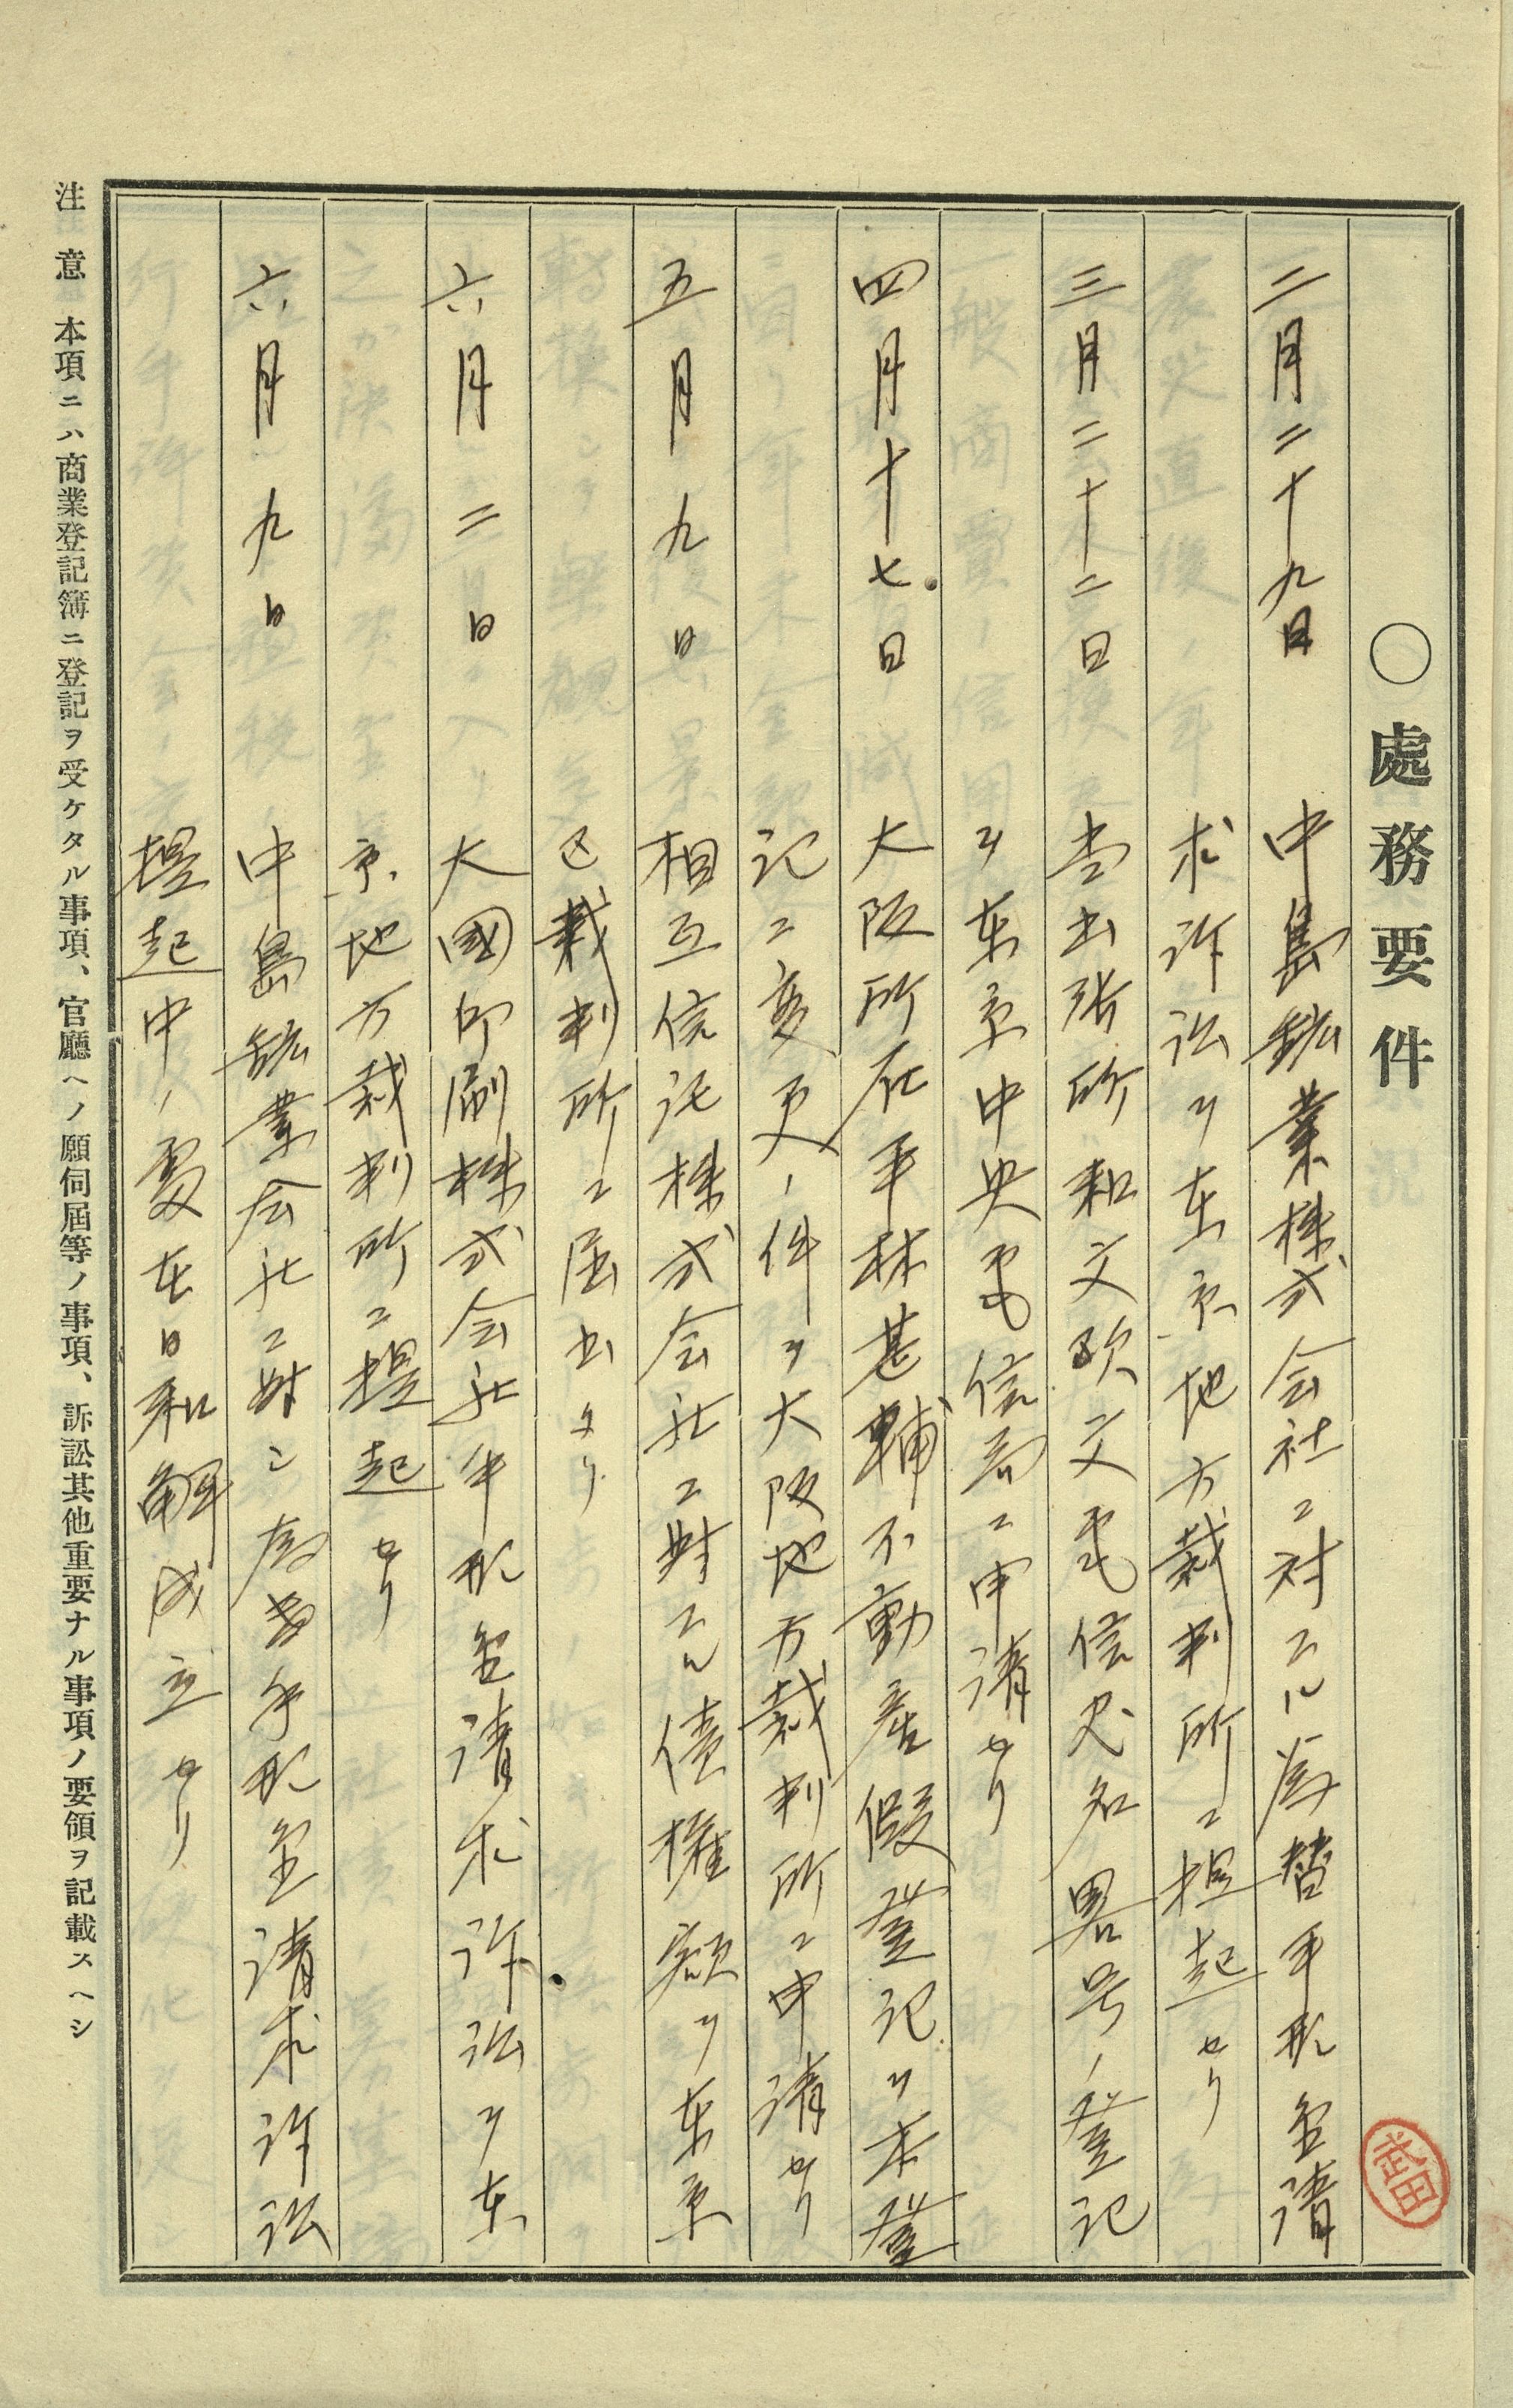 〇處務要件
二月二十九日 中島鉱業株式会社ニ対スル為替手形金請
求訴訟ヲ東京地方裁判所ニ提起セリ
三月二十二日 当出張所和文欧文電信宛名畧号ノ登記
ヲ東京中央電信局ニ申請セリ
四月十七日 大阪所在平林甚輔不動産假登記ヲ本登
記ニ変更ノ件ヲ大阪地方裁判所ニ申請セリ
五月九日 相互信託株式会社ニ対スル債権額ヲ東京
区裁判所ニ届出タリ
六月二日 大國印刷株式会社手形金請求訴訟ヲ東
京地方裁判所ニ提起セリ
六月九日 中島鉱業会社ニ対シ為替手形金請求訴訟
提起中ノ処本日和解成立セリ
注意 本項ニハ商業登記簿ニ登記ヲ受ケタル事項、官廳ヘノ願伺届等ノ事項、訴訟其他重要ナル事項ノ要領ヲ記載スヘシ
武田